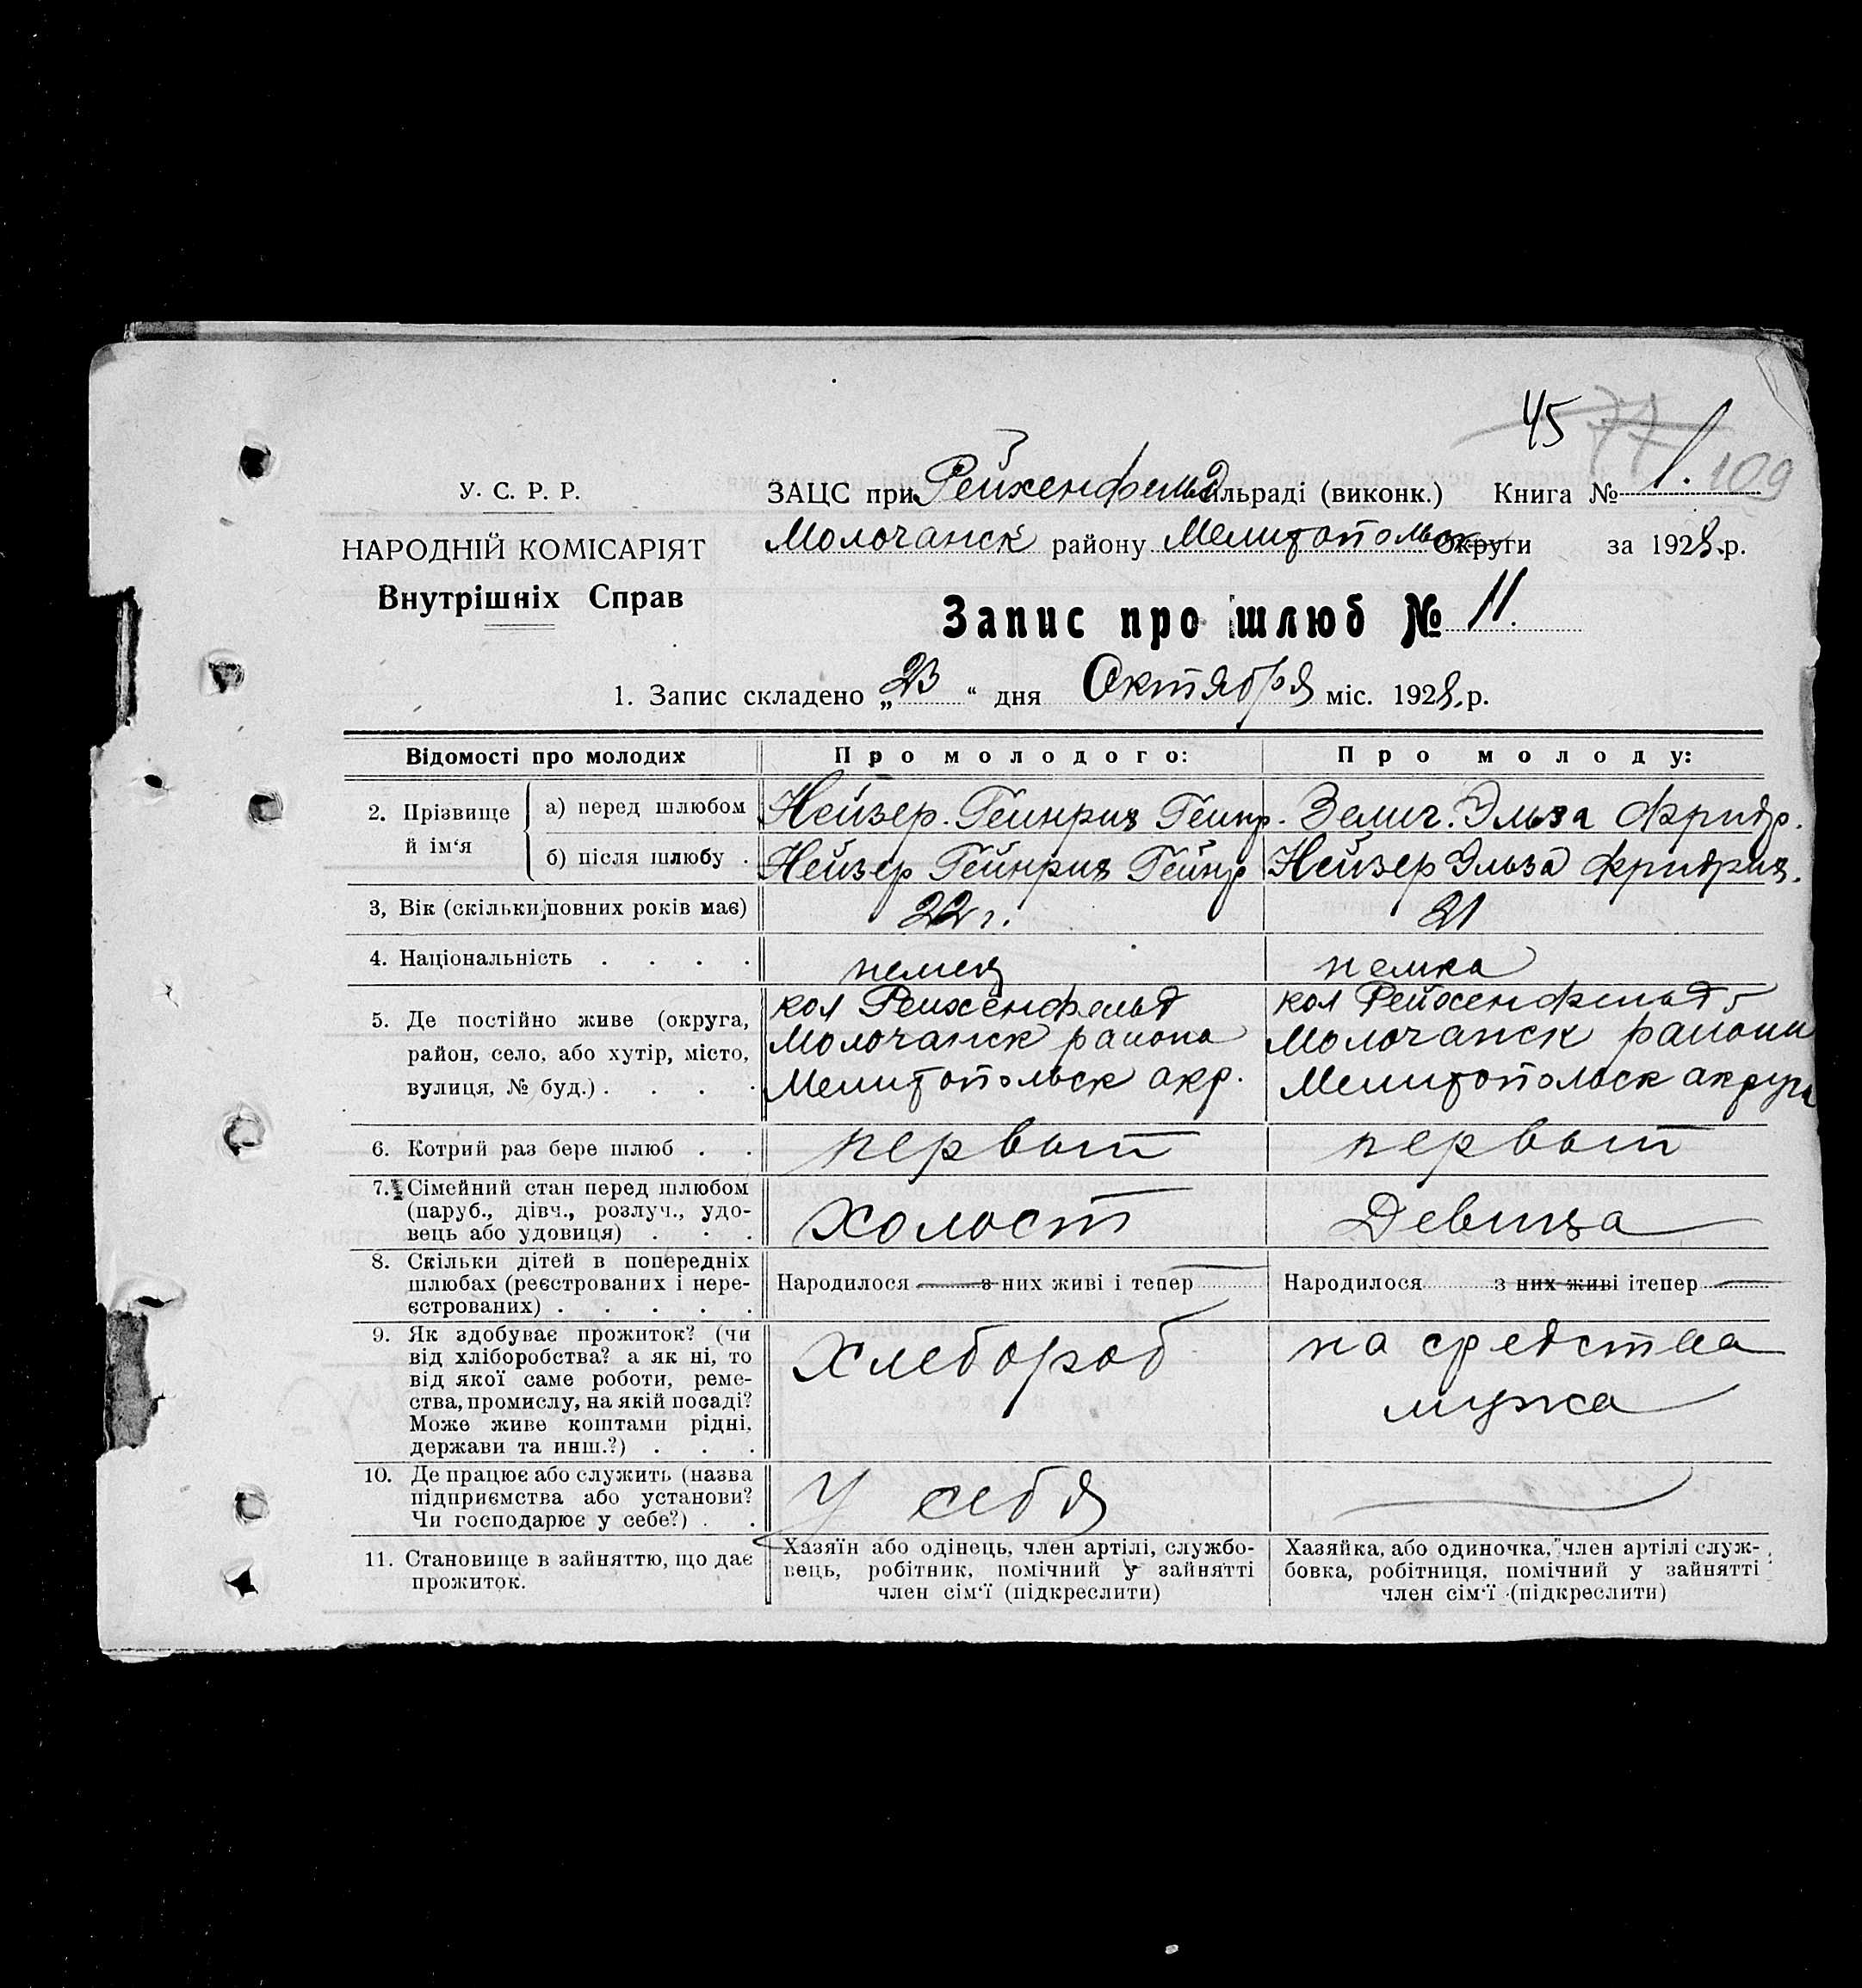 45 77
109
У. С. Р. Р.
НАРОДНІЙ КОМІСАРІЯТ
Внутрішніх Справ
ЗАЦС при Рейхенфельд ильраді (виконк.) Книга № 1.
Молочанск району Мелитопольск Округи за 1928.р.
Запис про шлюб № 11.
1. Запис складено „23“ дня Октября міс. 1928.р.
Відомості про молодих
Про молодого:
Про молоду:
2. Прізвище й ім‘я
а) перед шлюбом
Нейзер. Гейнрих Гейнр.
Зелиг. Эльза Фридр.
б) після шлюбу .
Нейзер Гейнрих Гейнр
Нейзер Эльза Фридрих.
3, Вік (скільки повних років має)
22 г.
21
4. Національність . . . .
немец
немка
5. Де постійно живе (округа,
район, село, або хутір, місто,
вулиця, № буд.) . . . .
кол Рейхенфельд
Молочанск района
Мелитопольск акр.
кол Рейхенфельд
Молочанск района
Мелитопольск акруги
6. Котрий раз бере шлюб . .
первый
первый
7. Сімейний стан перед шлюбом
(паруб., дівч., розлуч., удо-
вець або удовиця) . . .
Холост
Девица
8. Скільки дітей в попередніх
шлюбах (реєстрованих і нере-
єстрованих) . . . . .
Народилося з них живі і тепер
Народилося з них живі ітепер
9. Як здобуває прожиток? (чи
від хліборобства? а як ні, то
від якої саме роботи, реме-
ства, промислу, на якій посаді?
Може живе коштами рідні,
держави та инш.?) . . .
Хлебороб
на средства
мужа
10. Де працює або служить (назва
підприємства або установи?
Чи господарює у себе?) . .
У себя
11. Становище в зайняттю, що дає
прожиток.
Хазяїн або одінець, член артілі, службо-
вець, робітник, помічний у зайнятті
член сім‘ї (підкреслити)
Хазяйка, або одиночка, член артілі служ-
бовка, робітниця, помічний у зайнятті
член сім‘ї (підкреслити)